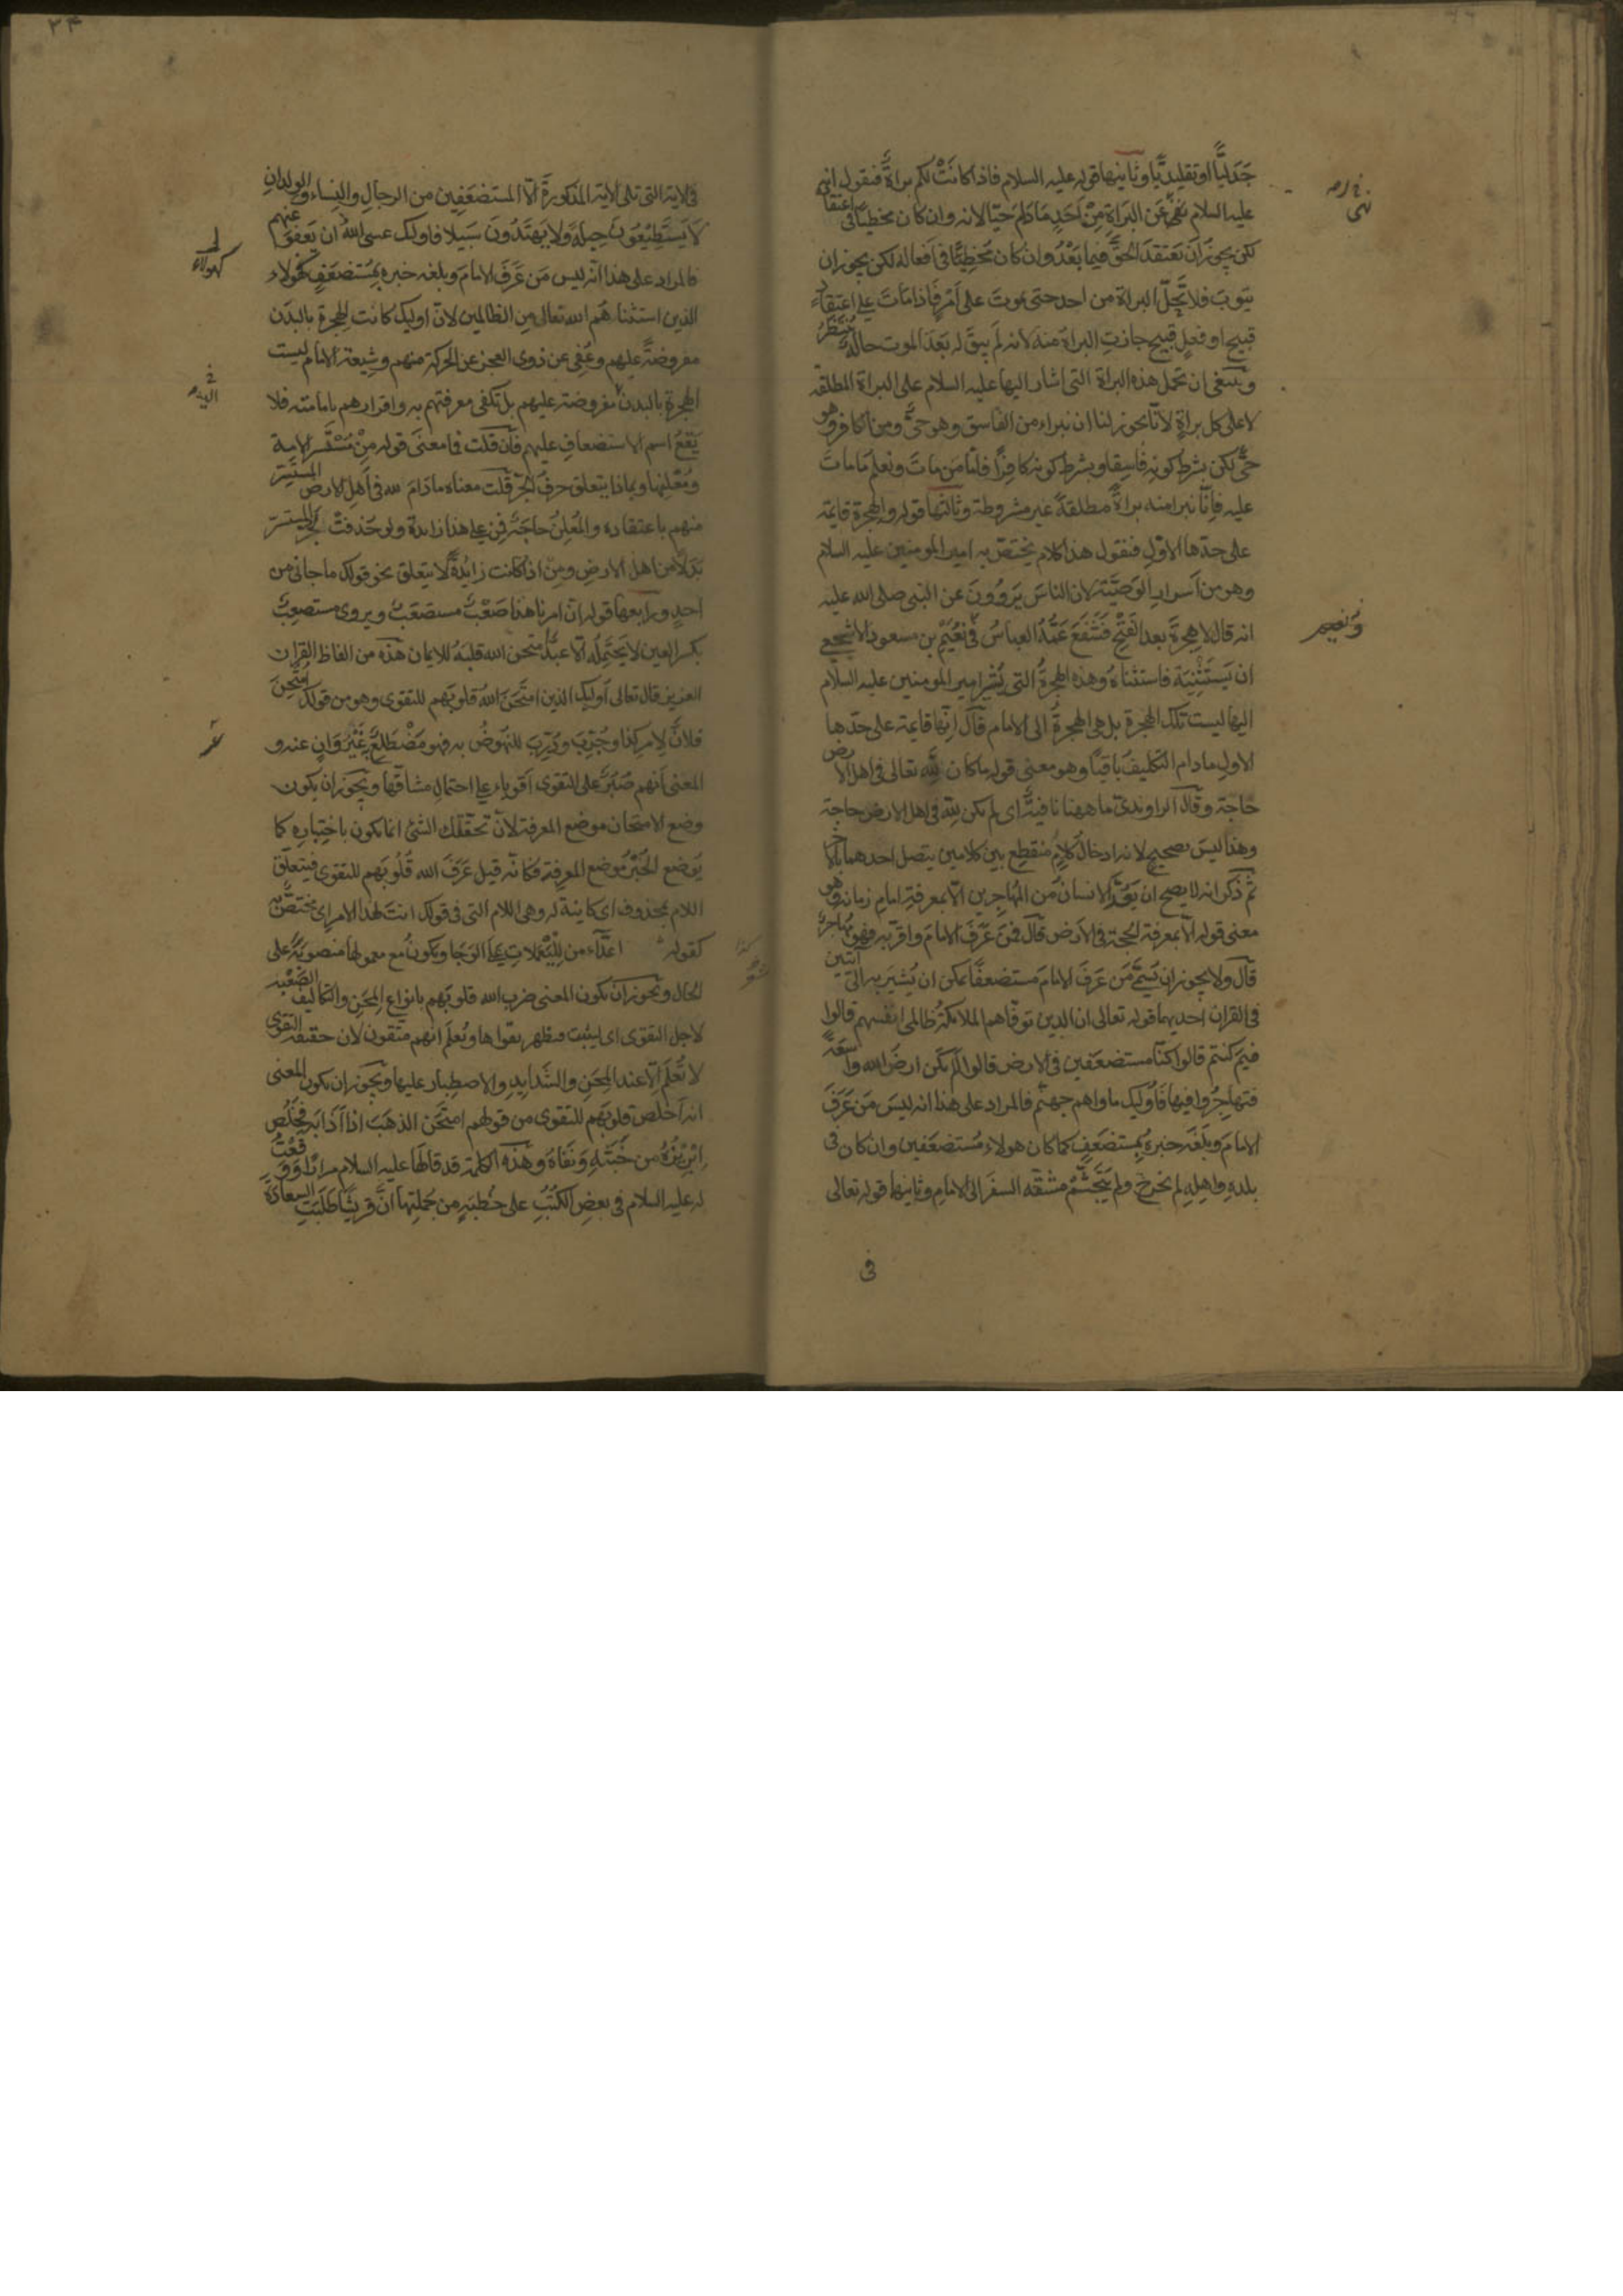 جَدَليًّا او تقليديًّا وثانيها قوله عليه السلام فاذا كانَتْ لكم براةٌ فنقول انه
عليه السلام نهى عَن البَراةِ مِنْ اَحَدٍ مَا دَامَ حَيًّا لانه وان كان مخطيًا فى اعتقا
لكن يجوز اَن يَعتقدَ الحقَّ فيما بَعْدُ وان كان مُخطِيًّا فى اَفعاله لكن يجوز ان
يتوبَ فلا تحِلّ البراة من احد حتى يموتَ على اَمْرٍ فَاذا مَاتَ على اعتقادٍ
قبيحٍ او فعلٍ قبيحٍ جازتِ البراة منه لانه لَم يبقَ له بَعدَ الموت حالةٌ تُنتظرُ
وينبغى ان تحمل هذه البراة التى اشار اليها عليه السلام على البراة المطلقه
لا على كل براةٍ لانّا يجوز لنا ان نبراء من الفاسق وهو حىٌّ ومن الكافر وهو
حىٌّ لكن بشرطِ كونه فاسِقا وبشرطِ كونه كافِرًا فامّا مَن ماتَ ونعلم ما ماتَ
عليه فاِنّا نبرا منه براةً مطلقةً غير مشروطة وثالثها قوله والهجرة قايمة
على حدّها الاوّلِ فنقول هذا كلام يختصّ به امير المومنين عليه السلام
وهو من اَسرارِ الوَصيّة لان الناسَ يَروُونَ عن النبى صلى الله عليه
انه قال لا هِجرةَ بعد الفَتْحِ فَشَفَعَ عَمُّهُ العباسُ فى نُعَيْمِ بن مسعود الاشجعى
ان يَسْتَثْنِيَه فاستثناهُ وهذه الهجرةُ التى يُشير امير المومنين عليه السلام
اليها ليست تلك الهجرة بل هى الهجرةُ الى الامام قال انّها قايمة على حدّها
الاولِ ما دام التكليفُ باقيًا وهو معنى قوله ما كان للّه تعالى فى اهل الارض
حَاجة وقال الراوندىّ ما ههنا نافيةٌ اى لم يكن للّه فى اهل الارض حاجة
وهذا ليسَ بصحيحٍ لانه ادخال كلامٍ منقطِع بين كلامين يتصل احدهما بالاخر
ثم ذكر انه لا يصح ان يُعَدَّ الانسانُ من المُهاجِرين الّا بمعرفة امامِ زمانه وهو
معنى قوله الّا بمعرفة الحجة فى الارض قال فمَن عَرَفَ الامامَ واقرّ به فهو مُهاجرٌ
قال ولا يجوز ان يُسمَّى مَن عَرَفَ الامامَ مستضعفًا يمكن ان يُشيرَ به الى آيتين
فى القران احديهما قوله تعالى ان الذين توفّاهم الملائكة ظالمى انفسهم قالوا
فيمَ كنتم قالوا كنّا مستضعَفين فى الارض قالوا اَلَم تكن ارضُ الله واسعَةً
فتهاجِرُوا فيها فاُولئك ماواهم جهنّم فالمراد على هذا انه ليسَ مَن عَرَفَ
الامامَ وبَلَغَه خبره بمستضعَفٍ كما كان هولاء مُستضعَفين وان كان فى
بلدهِ واهلِهِ لم يخرج ولم يَتَجَشَّمْ مشقّه السفَر الى الامامِ وثانيها قوله تعالى
فى
ونعيم
٢٤
فى الاية التى تلى الاية المذكورةَ الّا المستضعَفِين من الرجالِ والنِساءِ والولدانِ
لا يَستَطيعُونَ حيلةً ولا يَهتَدُونَ سَبيلا فاولئك عسى اللّهُ ان يَعفوَ عنهم
فالمراد على هذا انّه ليس مَن عَرَفَ الامامَ وبلغه خبره بمُستَضعَفٍ كهولاء
الذين استثناهُم الله تعالى من الظالمين لانّ اولئك كانت الهجرة بالبدَن
مفروضةً عليهم وعُفِى عن ذوى العجز عن الحركة منهم وشيعة الامام ليست
الهجرة بالبدن مفروضة عليهم بل تكفى معرفتهم به واقرارهم بامامته فلا
يَقعُ اسم الاستضعافِ عليهم فان قلت فما معنَى قوله مِنْ مُسْتَسِرّ الامة
ومُعْلِنِها وبماذا يتعلق حرفُ الجرّ قلت معناه ما دامَ لله فى اهل الارض المُستَسِرّ
منهم باعتقاده والمُعلِنُ حاجَةٌ فمِن على هذا زايدة ولو حُذفتْ لجرّ المستسرّ
بَدلاً من اهل الارض ومِن اذا كانت زايدةً لا يتعلق نحو قولك ما جانى من
احدٍ ورابعها قوله ان امرنا هذا صَعْبٌ مستصعَبٌ ويروى مستصعِبٌ
بكسر العين لا يَحتَمِلُه الّا عبدٌ امتحن الله قلبَهُ للايمان هذه من الفاظ القران
العزيز قال تعالى اولئك الذين امتَحَنَ اللهُ قلوبَهم للتقوى وهو من قولك امتُحِنَ
فلانٌ لاِمرِ كذا وجُرِّبَ ودُرِّبَ للنهوضِ به فهو مُضْطلِعٌ بِه غَيْرُ وَانٍ عنه و
المعنى اَنهم صُبُرٌ على التقوى اَقوياء على احتمالِ مشاقّها ويجوز ان يكون
وضع الامتحان موضع المعرفة لانّ تحقّقك الشئ انما يكون باختِبارِه كما
يُوضع الخُبْر مَوضع المعرفة فكانّه قيل عَرَفَ الله قُلُوبَهم للتقوى فيتعلّق
اللام بمحذوف اى كاينة له وهى اللام التى فى قولك انتَ لهذا الامر اى مختصٌّ به
كقوله اعدّاء من لِليَعْمَلاتِ على الوَجَا ويكونُ مع معمولها منصوبَةً على
الحال ويجوز ان يكون المعنى ضرب الله قلوبَهم بانواع المِحَنِ والتكاليف الصَّعْبه
لاجل التقوى اى ليثبت فيظهر تقواها ويُعلمَ انهم متّقون لان حقيقة التقوى
لا تُعلَم الّا عند المِحَنِ والشّدايِدِ والاصطِبار عليها ويجوز ان يكون المعنى
انه اَخلَص قلوبَهم للتقوى من قولهم امتَحَنَ الذهَبَ اذا اَذَابَه فخلُص
اِبْرِيزُهُ من خَبَثِهِ ونَقّاهُ وهذه الكلمة قد قالَها عليه السلام مِرارًا ووقَفْتُ
له عليه السلام فى بعضِ الكُتُبِ على خُطبَةٍ من جُملتِها انَّ قُريشًا طلَبَتِ السعادةَ
كهولاء